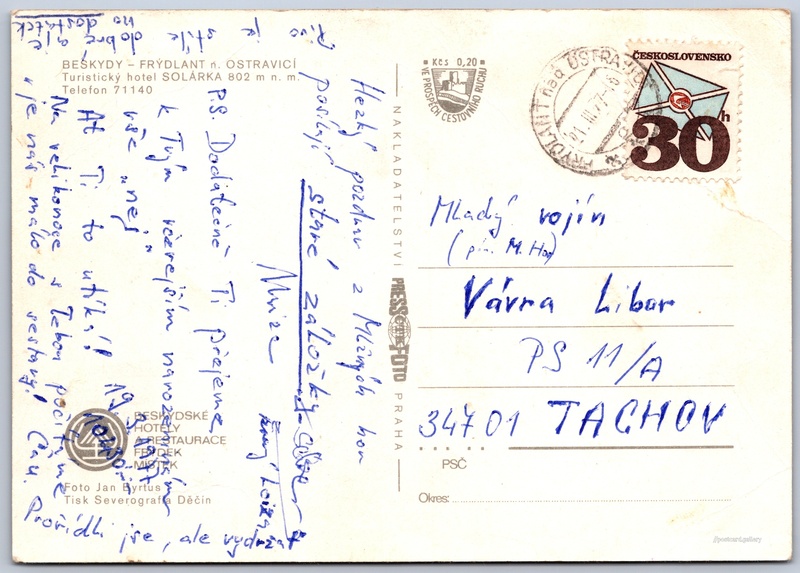 BESKYDY – FRÝDLANT n. OSTRAVICÍ
Turistický hotel SOLÁRKA 802 m n. m.
Telefon 71140
Hezký pozdrav z Mlžných hor
posílají
staré záložky
P.S. Dodatečně Ti přejeme
k Tvým včerejším narozeninám
vše „nej"
Ať Ti to utíká!
Na velikonoce s Tebou počítáme
je nás málo do sestavy! Čau.
Prořídli jse, ale vydržat
Pivo je stále dobré, ale
ho dostatek
19. 3. 1977
BESKYDSKÉ
HOTELY
A RESTAURACE
FRÝDEK
MÍSTEK
Foto Jan Byrtus
Tisk Severografia Děčín
NAKLADATELSTVÍ PRESSFOTO PRAHA
Kčs 0,20
VE PROSPĚCH CESTOVNÍHO RUCHU
FRÝDLANT nad OSTRAVICÍ
21. III. 77
ČESKOSLOVENSKO
30h
Mladý vojín
Vávra Libor
PS 11/A
347 01 TACHOV
PSČ
Okres: